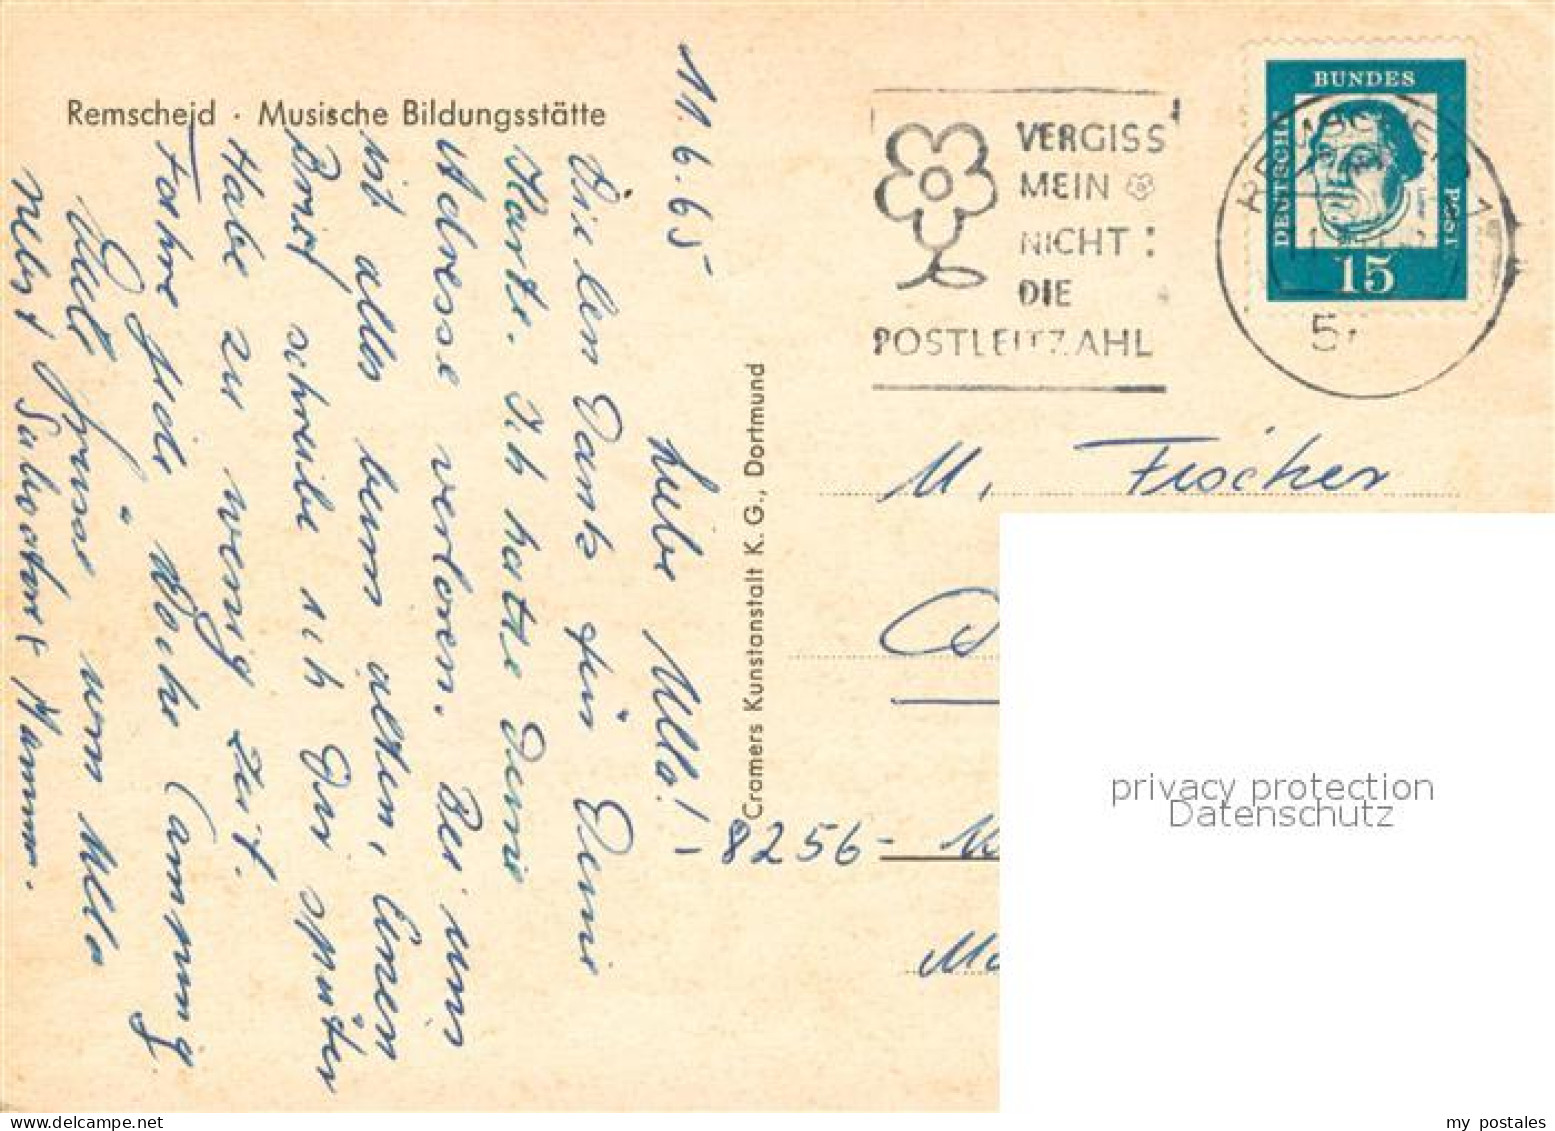 Remscheid · Musische Bildungsstätte
11.6.65
Liebe Ulla! –
Vielen Dank für Deine
Karte. Ich hatte Deine
Adresse verloren. Bei uns
ist alles beim alten, Einen
Brief schreibe ich Dir später
Habe zu wenig Zeit.
Fahre jede Woche
Gute Grüsse von Ulla
nebst
Cramers Kunstanstalt K. G., Dortmund
VERGISS
MEIN
NICHT
DIE
POSTLEITZAHL
DEUTSCHE
BUNDES
POST
Luther
15
M. Fischer
8256 –
privacy protection
Datenschutz
my postales